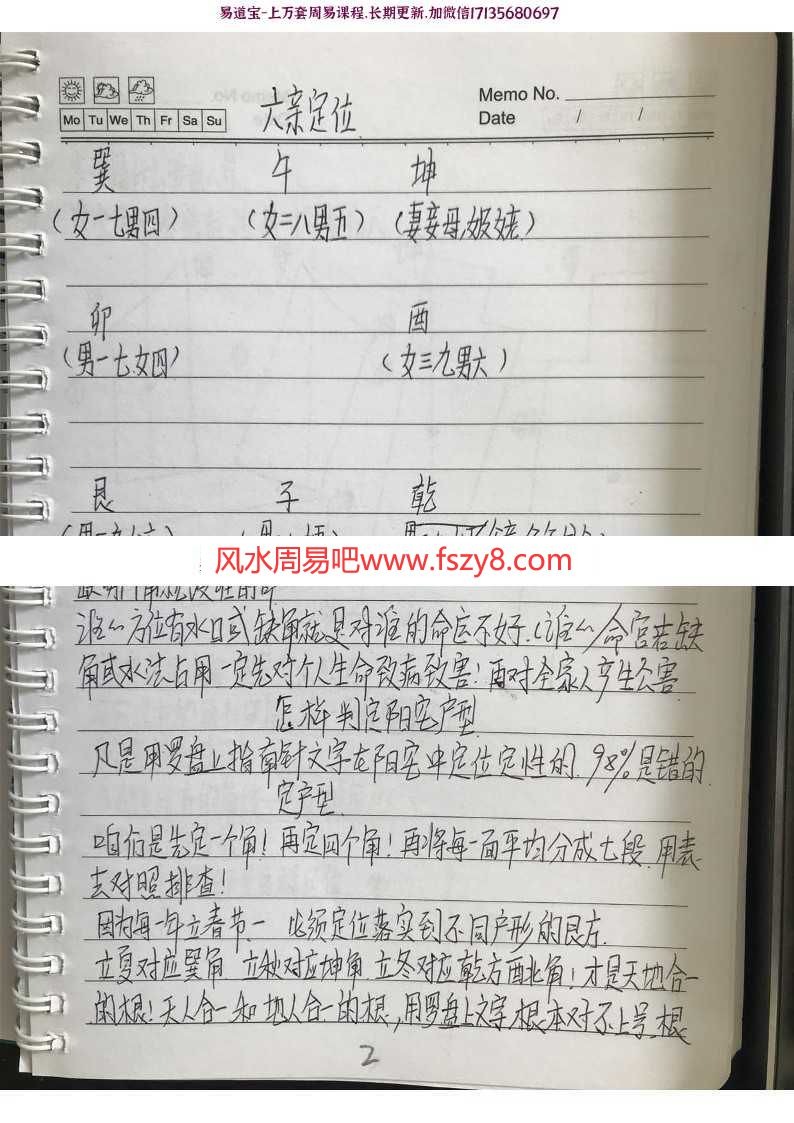 易道宝-上万套周易课程.长期更新.加微信17135680697
六亲定位
Memo No.
Date / /
Mo Tu We Th Fr Sa Su
巽 午 坤
(女一七男四) (女二八男五) (妻妾母)
卯 酉
(男一七女四) (女三九男六)
艮 子 乾
风水周易吧www.fszy8.com
谁的方位有水口或缺角就是对谁的命运不好.(谁的命宫若缺
角或水法占用一定先对个人生命致病致害!再对全家人产生公害
怎样判定阳宅户型
凡是用罗盘上指南针文字在阳宅中定位定性的.98%是错的
定户型
咱们是先定一个角!再定四个角!再将每一面平均分成七段.用表
去对照排查!
因为每一年立春节一必须定位落实到不同户形的艮方.
立夏对应巽角 立秋对应坤角 立冬对应乾方西北角!才是天地合一
的根!天人合一和地人合一的根,用罗盘上文字根本对不上号.根
2